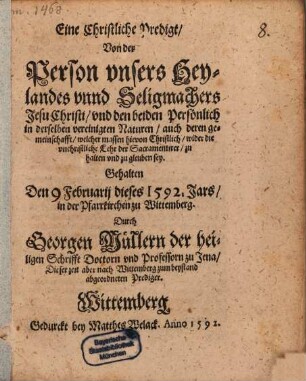 m. 1468
8.
Eine Christliche Predigt/
Von der
Person vnsers Hey-
landes vnnd Seligmachers
Jesu Christi/ vnd den beiden Persönlich
in derselben vereinigten Naturen/ auch deren ge-
meinschafft/ welcher massen hievon Christlich/ wider die
vnchristliche Lehr der Sacramentirer/ zu
halten vnd zu gleuben sey.
Gehalten
Den 9 Februarij dieses 1592. Jars/
in der Pfarrkirchen zu Wittemberg.
Durch
Georgen Müllern der hei-
ligen Schrifft Doctorn vnd Professorn zu Jena/
Dieser zeit aber nach Wittemberg zum beystand
abgeordneten Prediger.
Wittemberg
Gedurckt bey Matthes Welack. Anno 1592.
Bayerische
Staatsbibliothek
München